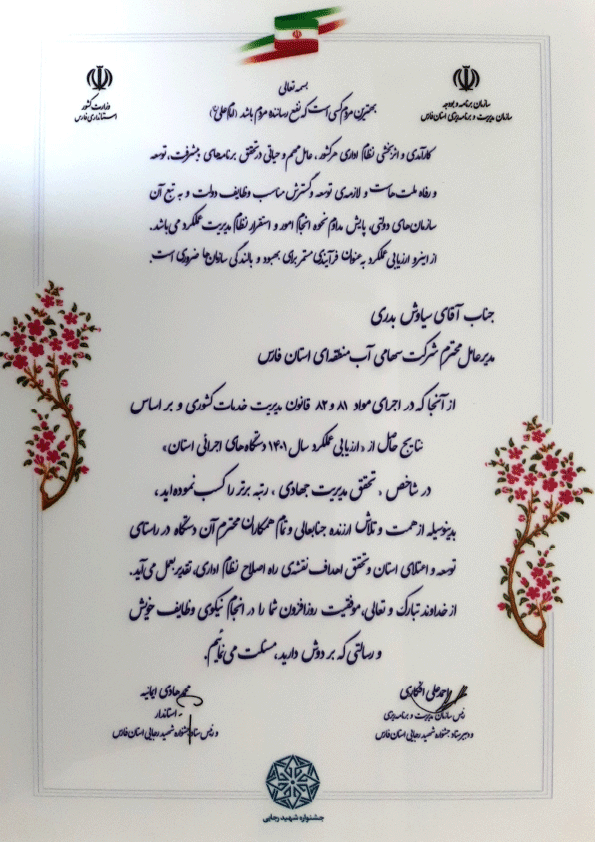 بسمه تعالی
بهترین مردم کسی است که نفع رساننده مردم باشد (امام علی ع)
وزارت کشور
استانداری فارس
سازمان برنامه و بودجه
سازمان مدیریت و برنامه‌ریزی استان فارس
کارآمدی و اثربخشی نظام اداری هر کشور، عامل مهم و حیاتی در تحقق برنامه‌های پیشرفت، توسعه
و رفاه ملت هاست و لازمه‌ی توسعه و گسترش مناسب وظایف دولت و به تبع آن
سازمان‌های دولتی، پایش مداوم نحوه انجام امور و استقرار نظام مدیریت عملکرد می‌باشد.
از اینرو ارزیابی عملکرد به عنوان فرآیندی مستمر برای بهبود و بالندگی سازمان‌ها ضروری است.
جناب آقای سیاوش بدری
مدیرعامل محترم شرکت سهامی آب منطقه‌ای استان فارس
از آنجا که در اجرای مواد ۸۱ و ۸۲ قانون مدیریت خدمات کشوری و بر اساس
نتایج حاصل از «ارزیابی عملکرد سال ۱۴۰۱ دستگاه‌های اجرائی استان»
در شاخص ، تحقق مدیریت جهادی ، رتبه برتر را کسب نموده‌اید ،
بدینوسیله از همت و تلاش ارزنده جنابعالی و تمام همکاران محترم آن دستگاه در راستای
توسعه و اعتلای استان و تحقق اهداف نقشه‌ی راه اصلاح نظام اداری، تقدیر بعمل می‌آید.
از خداوند تبارک و تعالی، موفقیت روزافزون شما را در انجام نیکوی وظایف خویش
و رسالتی که بر دوش دارید، مسئلت می‌نمائیم.
احمدعلی افتخاری
رئیس سازمان مدیریت و برنامه‌ریزی
و دبیر ستاد جشنواره شهید رجایی استان فارس
محمدهادی ایمانیه
استاندار
و رئیس ستاد جشنواره شهید رجایی استان فارس
جشنواره شهید رجایی